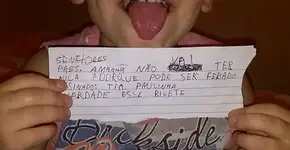 SENHORES
PAES, AMANHÃ NÃO VAI TER
AULA PORQUE PODE SER FERIADO
ASSINADO: TIA PAULINHA
É VERDADE ESSE BILETE
Darkside